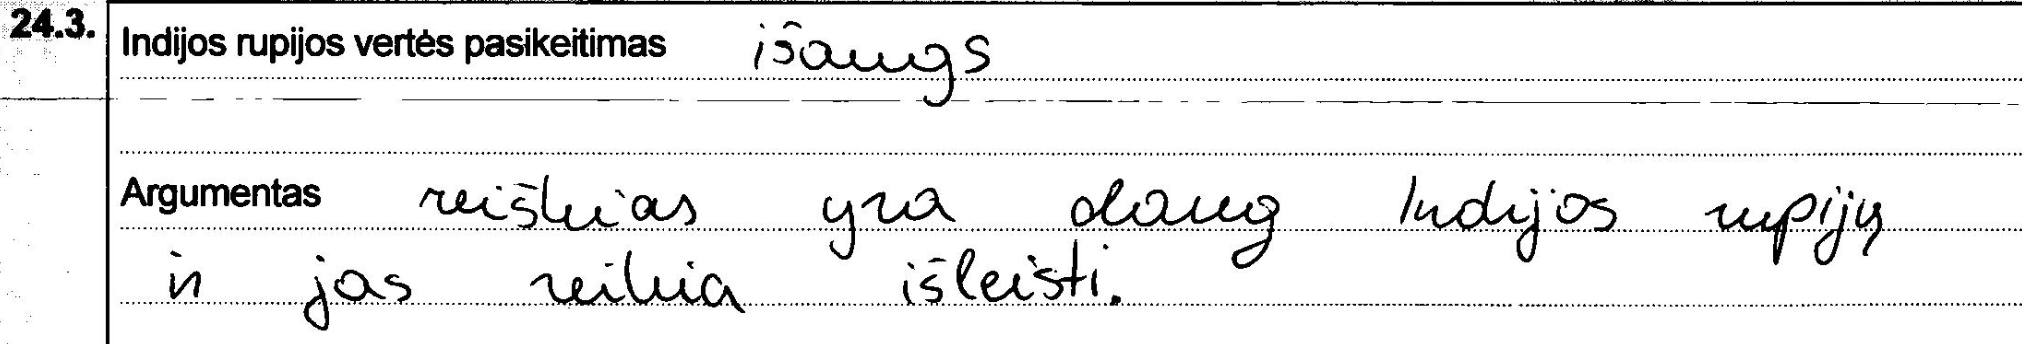 24.3.
Indijos rupijos vertės pasikeitimas išaugs
Argumentas reiškias yra daug Indijos rupijų
ir jas reikia išleisti.